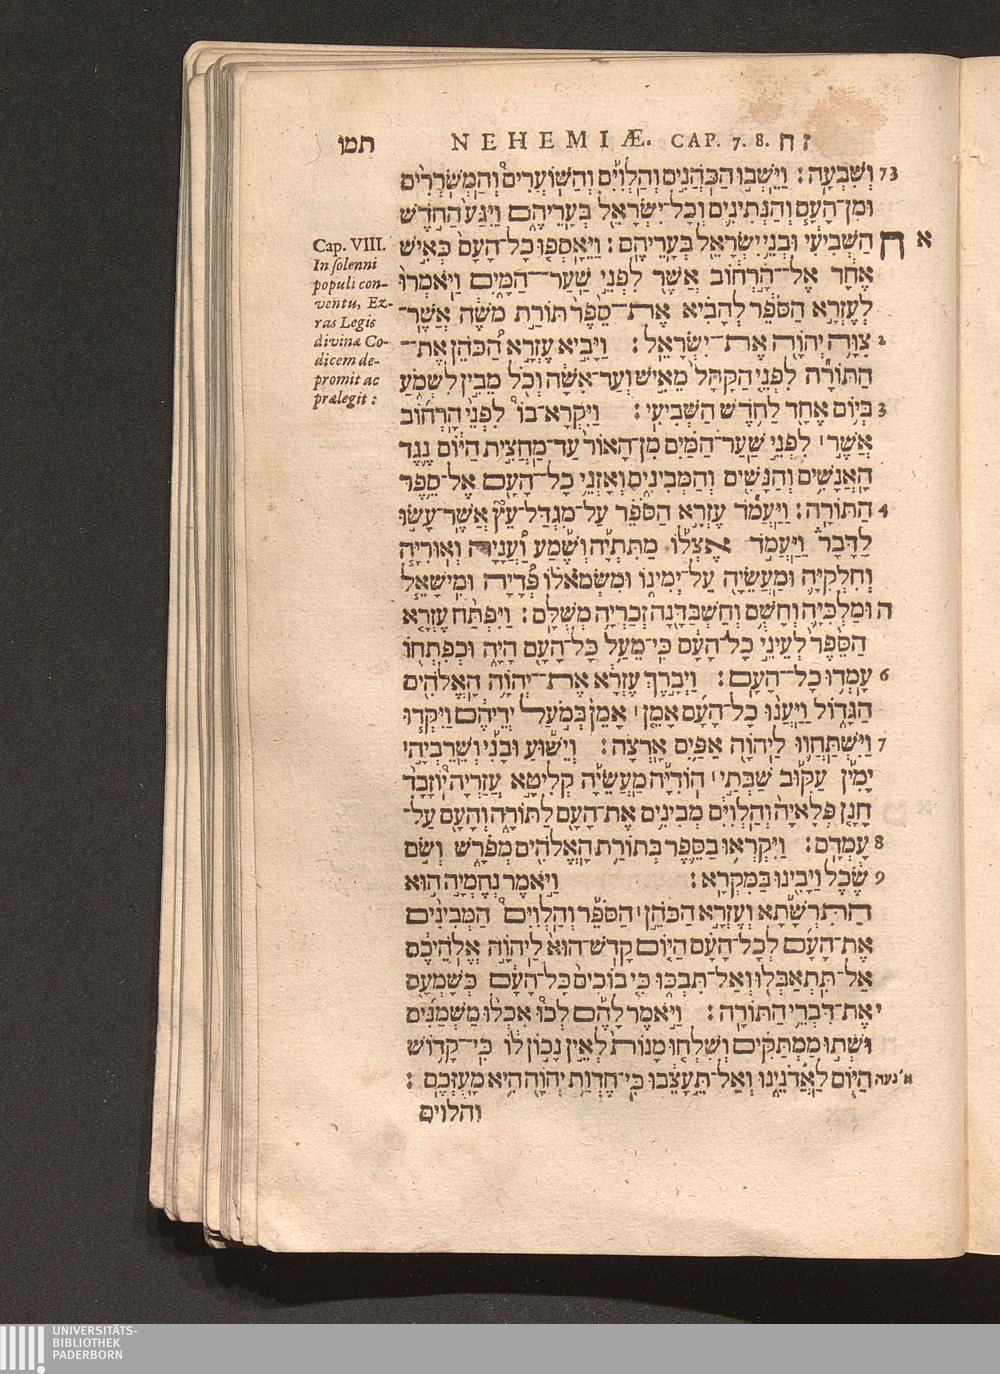 תמו NEHEMIÆ. CAP. 7. 8. ז ח
73 וְשִׁבְעָה: וַיֵּשְׁבוּ הַכֹּהֲנִים וְהַלְוִיִּם וְהַשּׁוֹעֲרִים וְהַמְשֹׁרְרִים
וּמִן־הָעָם וְהַנְּתִינִים וְכָל־יִשְׂרָאֵל בְּעָרֵיהֶם וַיִּגַּע הַחֹדֶשׁ
א ח הַשְּׁבִיעִי וּבְנֵי יִשְׂרָאֵל בְּעָרֵיהֶם: וַיֵּאָסְפוּ כָל־הָעָם כְּאִישׁ
אֶחָד אֶל־הָרְחוֹב אֲשֶׁר לִפְנֵי שַׁעַר־הַמָּיִם וַיֹּאמְרוּ
לְעֶזְרָא הַסֹּפֵר לְהָבִיא אֶת־סֵפֶר תּוֹרַת מֹשֶׁה אֲשֶׁר־
2 צִוָּה יְהוָה אֶת־יִשְׂרָאֵל: וַיָּבִיא עֶזְרָא הַכֹּהֵן אֶת־
הַתּוֹרָה לִפְנֵי הַקָּהָל מֵאִישׁ וְעַד־אִשָּׁה וְכֹל מֵבִין לִשְׁמֹעַ
3 בְּיוֹם אֶחָד לַחֹדֶשׁ הַשְּׁבִיעִי: וַיִּקְרָא־בוֹ לִפְנֵי הָרְחוֹב
אֲשֶׁר׀ לִפְנֵי שַׁעַר־הַמַּיִם מִן־הָאוֹר עַד־מַחֲצִית הַיּוֹם נֶגֶד
הָאֲנָשִׁים וְהַנָּשִׁים וְהַמְּבִינִים וְאָזְנֵי כָל־הָעָם אֶל־סֵפֶר
4 הַתּוֹרָה: וַיַּעֲמֹד עֶזְרָא הַסֹּפֵר עַל־מִגְדַּל־עֵץ אֲשֶׁר־עָשׂוּ
לַדָּבָר וַיַּעֲמֹד אֶצְלוֹ מַתִּתְיָה וְשֶׁמַע וַעֲנָיָה וְאוּרִיָּה
וְחִלְקִיָּה וּמַעֲשֵׂיָה עַל־יְמִינוֹ וּמִשְּׂמֹאלוֹ פְּדָיָה וּמִישָׁאֵל
ה וּמַלְכִּיָּה וְחָשֻׁם וְחַשְׁבַּדָּנָה זְכַרְיָה מְשֻׁלָּם: וַיִּפְתַּח עֶזְרָא
הַסֵּפֶר לְעֵינֵי כָל־הָעָם כִּי־מֵעַל כָּל־הָעָם הָיָה וּכְפִתְחוֹ
6 עָמְדוּ כָל־הָעָם: וַיְבָרֶךְ עֶזְרָא אֶת־יְהוָה הָאֱלֹהִים
הַגָּדוֹל וַיַּעֲנוּ כָל־הָעָם אָמֵן׀ אָמֵן בְּמֹעַל יְדֵיהֶם וַיִּקְּדוּ
7 וַיִּשְׁתַּחֲווּ לַיהוָה אַפַּיִם אָרְצָה: וְיֵשׁוּעַ וּבָנִי וְשֵׁרֵבְיָה׀
יָמִין עַקּוּב שַׁבְּתַי׀ הוֹדִיָּה מַעֲשֵׂיָה קְלִיטָא עֲזַרְיָה יוֹזָבָד
חָנָן פְּלָאיָה וְהַלְוִיִּם מְבִינִים אֶת־הָעָם לַתּוֹרָה וְהָעָם עַל־
8 עָמְדָם: וַיִּקְרְאוּ בַסֵּפֶר בְּתוֹרַת הָאֱלֹהִים מְפֹרָשׁ וְשׂוֹם
9 שֶׂכֶל וַיָּבִינוּ בַּמִּקְרָא: וַיֹּאמֶר נְחֶמְיָה הוּא
הַתִּרְשָׁתָא וְעֶזְרָא הַכֹּהֵן׀ הַסֹּפֵר וְהַלְוִיִּם הַמְּבִינִים
אֶת־הָעָם לְכָל־הָעָם הַיּוֹם קָדֹשׁ־הוּא לַיהוָה אֱלֹהֵיכֶם
אַל־תִּתְאַבְּלוּ וְאַל־תִּבְכּוּ כִּי בוֹכִים כָּל־הָעָם כְּשָׁמְעָם
י אֶת־דִּבְרֵי הַתּוֹרָה: וַיֹּאמֶר לָהֶם לְכוּ אִכְלוּ מַשְׁמַנִּים
וּשְׁתוּ מַמְתַקִּים וְשִׁלְחוּ מָנוֹת לְאֵין נָכוֹן לוֹ כִּי־קָדוֹשׁ
הַיּוֹם לַאֲדֹנֵינוּ וְאַל־תֵּעָצֵבוּ כִּי־חֶדְוַת יְהוָה הִיא מָעֻזְּכֶם:
והלוים
Cap. VIII.
In solenni
populi con-
ventu, Ez-
ras Legis
divinæ Co-
dicem de-
promit ac
prælegit:
UNIVERSITÄTS-
BIBLIOTHEK
PADERBORN